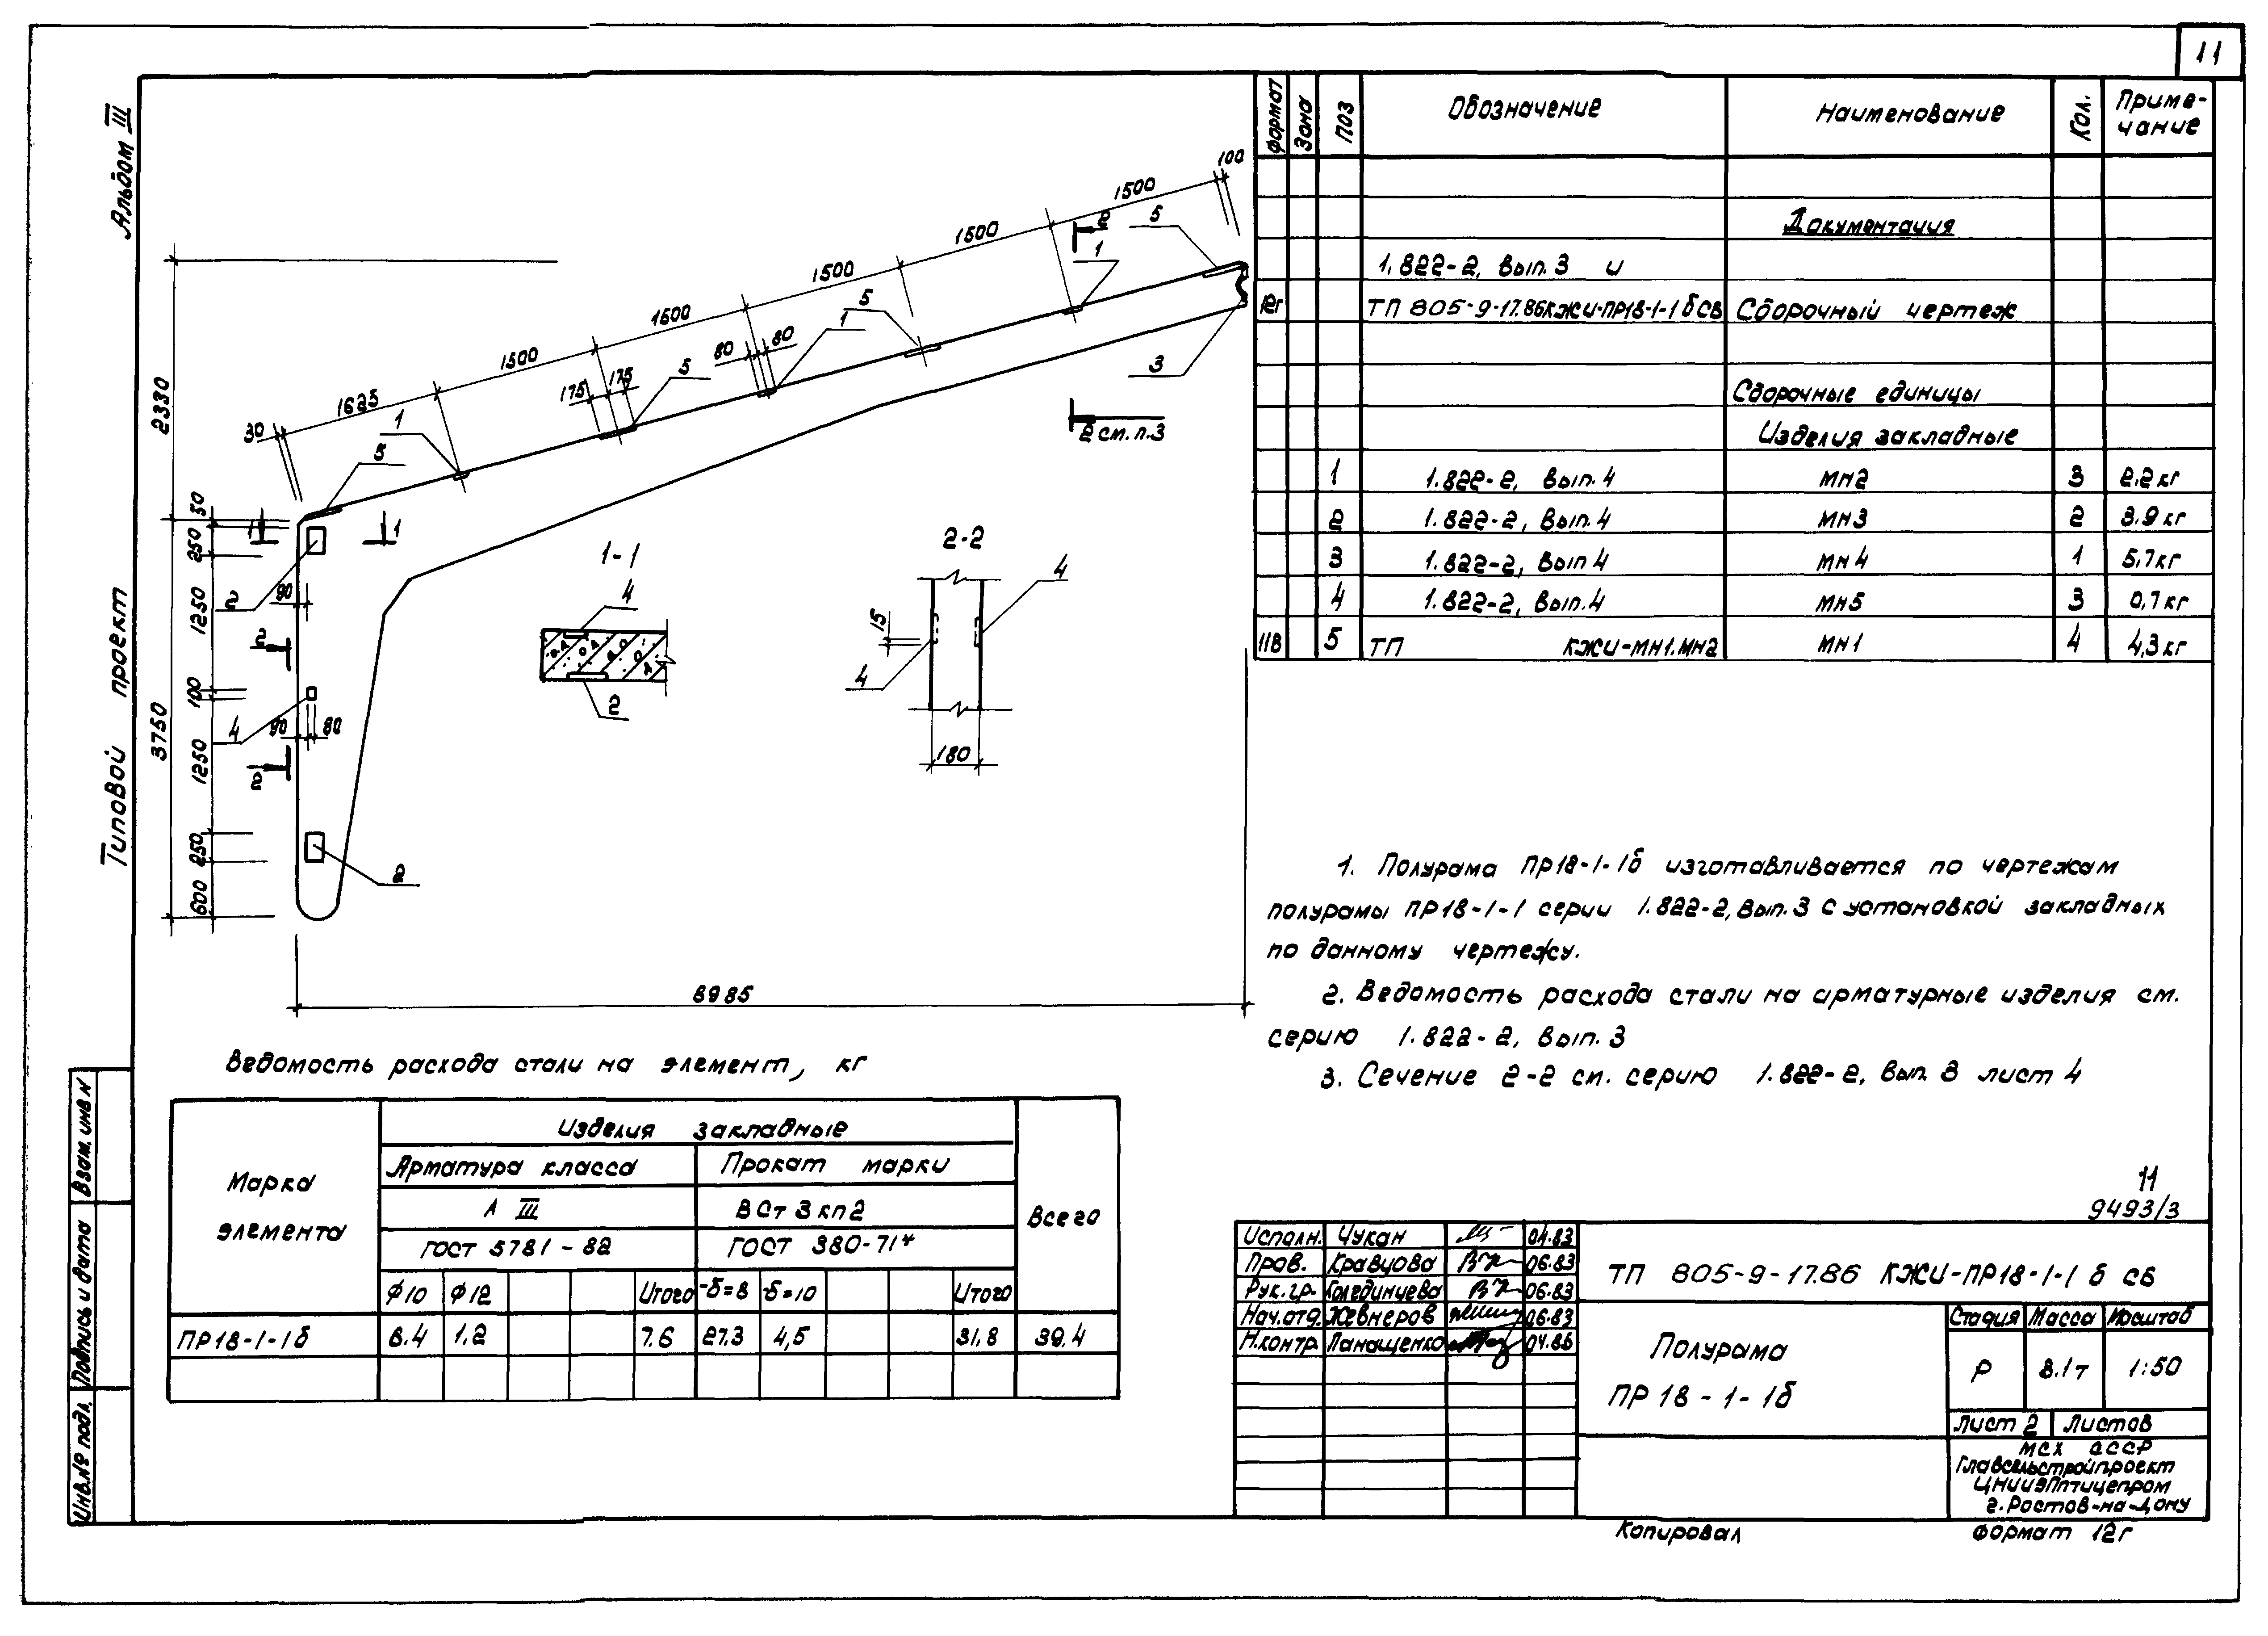 11
Альбом III
Типовой проект
формат Зона Поз Обозначение Наименование Кол. Приме-
чание
Документация
1.822-2, вып.3 и
12г ТП 805-9-17.86 КЖИ-ПР18-1-1б СБ Сборочный чертеж
Сборочные единицы
Изделия закладные
1 1.822-2, вып.4 МН2 3 2,2кг
2 1.822-2, вып.4 МН3 2 3.9кг
3 1.822-2, вып 4 МН4 1 5,7кг
4 1.822-2, вып.4 МН5 3 0,7кг
11В 5 ТП КЖИ-МН1.МН2 МН1 4 4,3кг
100
1500
2
5
1500
1
1500
5
1
1500
80 80
3
1500
5
175 175
2 см. п.3
1625
1
30
5
2330
50
1 1
250
2
90
1250
2
3750
100
4
90 80
1250
2
250
2
600
8985
1-1
4
2
2-2
4
15
4
180
1. Полурама ПР18-1-1б изготавливается по чертежам
полурамы ПР18-1-1 серии 1.822-2, вып.3 с установкой закладных
по данному чертежу.
2. Ведомость расхода стали на арматурные изделия см.
серию 1.822-2, вып.3
3. Сечение 2-2 см. серию 1.822-2, вып. 3 лист 4
Ведомость расхода стали на элемент, кг
Марка
элемента
Изделия закладные
Арматура класса Прокат марки
А III ВСт3кп2
Всего
ГОСТ 5781-82 ГОСТ 380-71*
ф10 ф12 Итого -б=8 -б=10 Итого
ПР18-1-1б 6.4 1.2 7.6 27.3 4,5 31,8 39.4
11
9493/3
Исполн. Чукан 04.83
Пров. Кравцова 06.83
Рук.гр. Колединцева 06.83
Нач.отд. Жевнеров 06.83
Н.контр. Панащенко 04.86
ТП 805-9-17.86 КЖИ-ПР18-1-1 б СБ
Полурама
ПР 18-1-1б
Стадия Масса Масштаб
Р 3.1т 1:50
Лист 2 Листов
МСХ СССР
Главсельстройпроект
ЦНИИЭПптицепром
г.Ростов-на-Дону
Копировал формат 12г
Взам. инв N
Подпись и дата
Инв.№ подл.